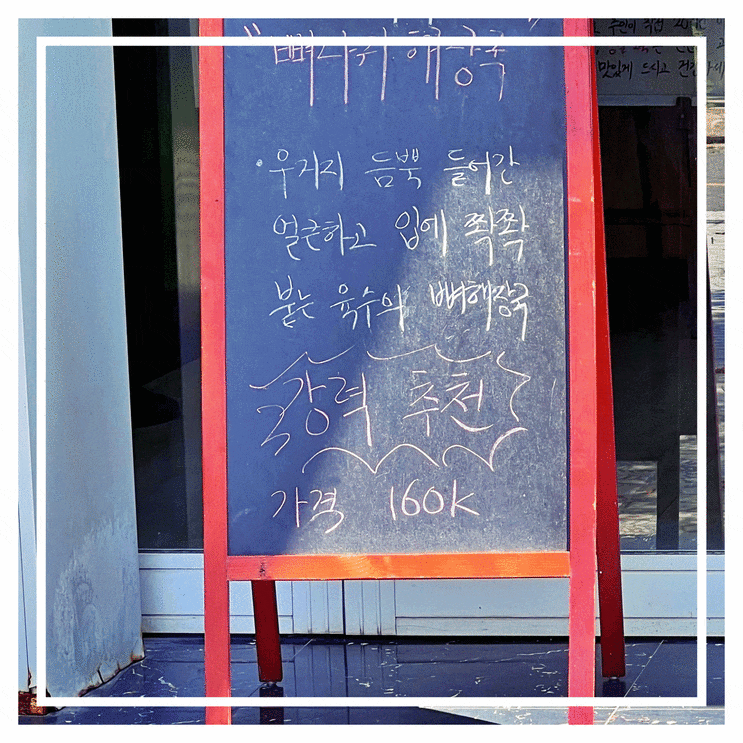 "뼈다귀 해장국"
· 우거지 듬뿍 들어간
얼큰하고 입에 쫙쫙
붙는 육수의 뼈해장국
강력 추천
가격 160K
맛있게 드시고